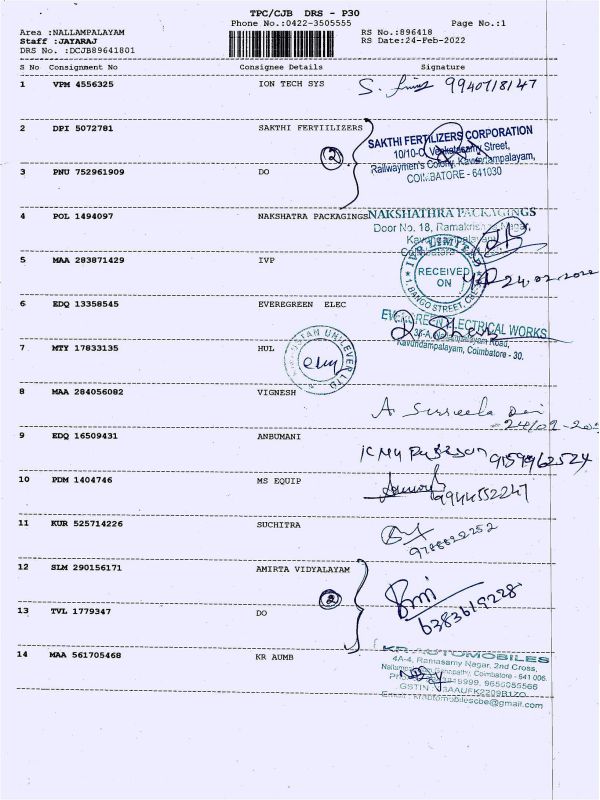 TPC/CJB DRS - P30
Phone No.:0422-3505555
Page No.:1
Area :NALLAMPALAYAM
Staff :JAYARAJ
DRS No. :DCJB89641801
RS No.:896418
RS Date:24-Feb-2022
S No Consignment No Consignee Details Signature
1 VPM 4556325 ION TECH SYS 9940718147
2 DPI 5072781 SAKTHI FERTIILIZERS
SAKTHI FERTILIZERS CORPORATION
10/10-C, Venkatasamy Street,
Railwaymen's Colony, Kavundampalayam,
COIMBATORE - 641030
(2)
3 PNU 752961909 DO
4 POL 1494097 NAKSHATRA PACKAGINGS
NAKSHATHRA PACKAGINGS
Door No. 18, Ramakrishna Nagar,
5 MAA 283871429 IVP
IVP LIMITED
RECEIVED
ON
24.02.2022
6 EDQ 13358545 EVEREGREEN ELEC
EVERGREEN ELECTRICAL WORKS
Kavundampalayam, Coimbatore - 30.
7 MTY 17833135 HUL
UNILEVER LTD
8 MAA 284056082 VIGNESH
A
9 EDQ 16509431 ANBUMANI
9159962524
10 PDM 1404746 MS EQUIP
9944552247
11 KUR 525714226 SUCHITRA
9788822252
12 SLM 290156171 AMIRTA VIDYALAYAM
(2)
6383619228
13 TVL 1779347 DO
14 MAA 561705468 KR AUMB
KR AUTOMOBILES
4A-4, Ramasamy Nagar, 2nd Cross,
Coimbatore - 641 006.
9655055566
GSTIN